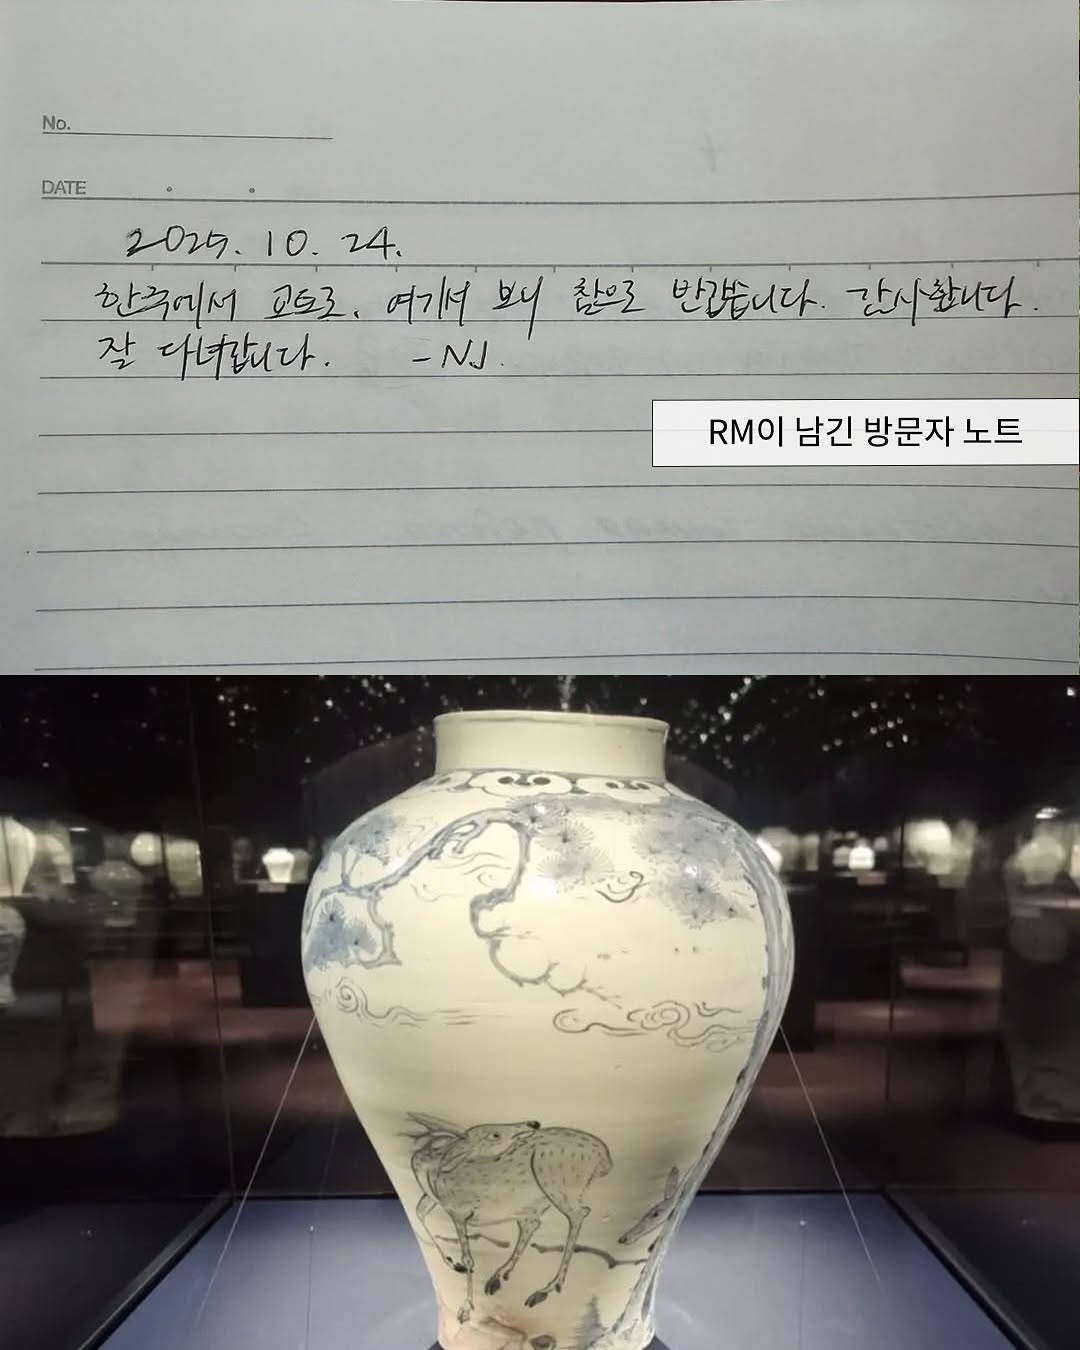 No.
DATE
2025. 10. 24.
한국에서 교토로. 여기서 보니 참으로 반갑습니다. 감사합니다.
잘 다녀갑니다. -NJ.
RM이 남긴 방문자 노트